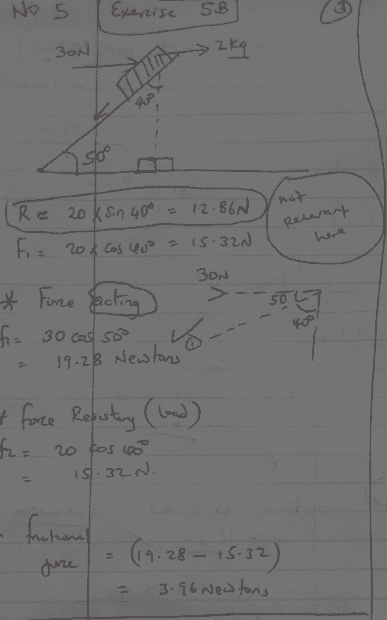 No 5 Exercise 5B 3
30N 2kg
40°
50°
R = 20 x Sin 40° = 12.86N
not relevant here
F1 = 20 x cos 40° = 15.32N
30N
* Force acting 50 40°
f1 = 30 cos 50° ①
= 19.28 Newtons
* force Resisting (load)
f2 = 20 cos 40°
= 15.32 N.
frictional force = (19.28 - 15.32)
= 3.96 Newtons